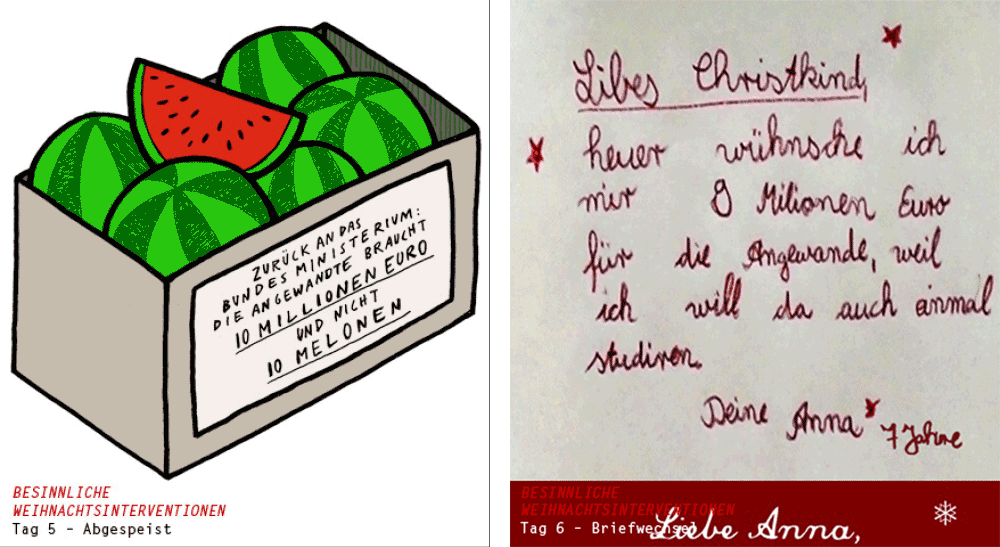 ZURÜCK AN DAS
BUNDES MINISTERIUM:
DIE ANGEWANDTE BRAUCHT
10 MILLIONEN EURO
UND NICHT
10 MELONEN
BESINNLICHE
WEIHNACHTSINTERVENTIONEN
Tag 5 – Abgespeist
Libes Christkind,
heuer wühnsche ich
mir 9 Milionen Euro
für die Angewande, weil
ich will da auch einmal
studiren.
Deine Anna
7 Jahre
BESINNLICHE
WEIHNACHTSINTERVENTIONEN
Tag 6 – Briefwechsel
Liebe Anna,